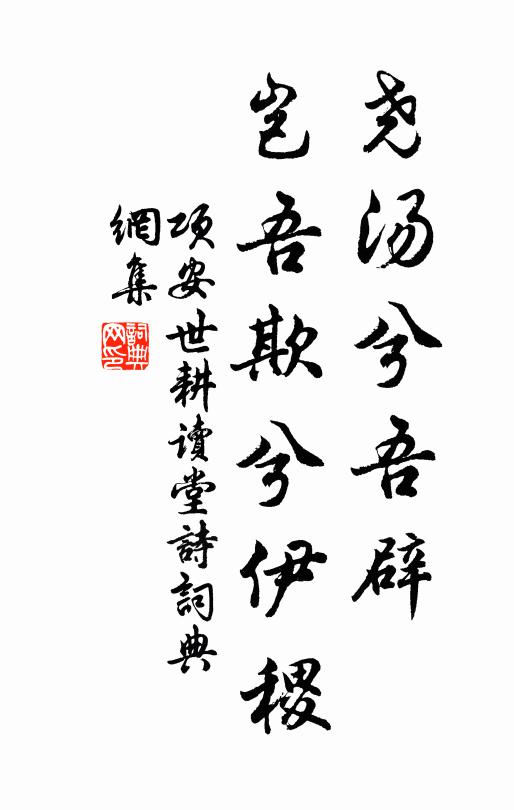 尧汤兮吾辟
岂吾欺兮伊稷
项安世耕讀堂詩詞典
網集
詞典网印